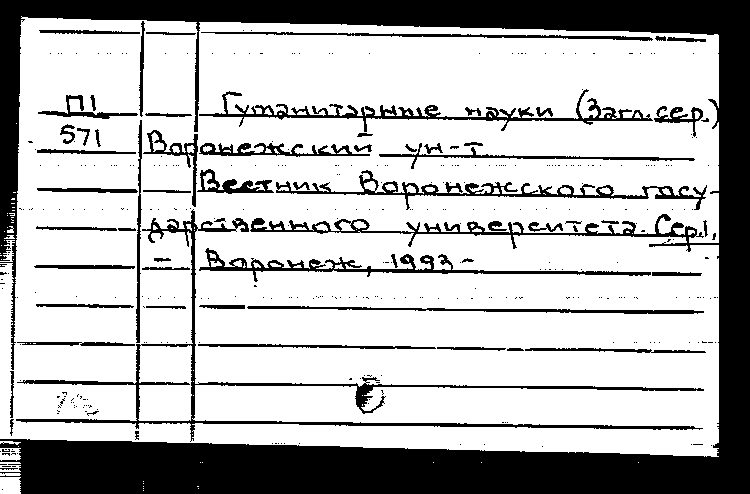 П1 Гуманитарные науки (Загл.сер.)
571 Воронежский ун-т
Вестник Воронежского госу-
дарственного университета. Сер.1,
- Воронеж, 1993-